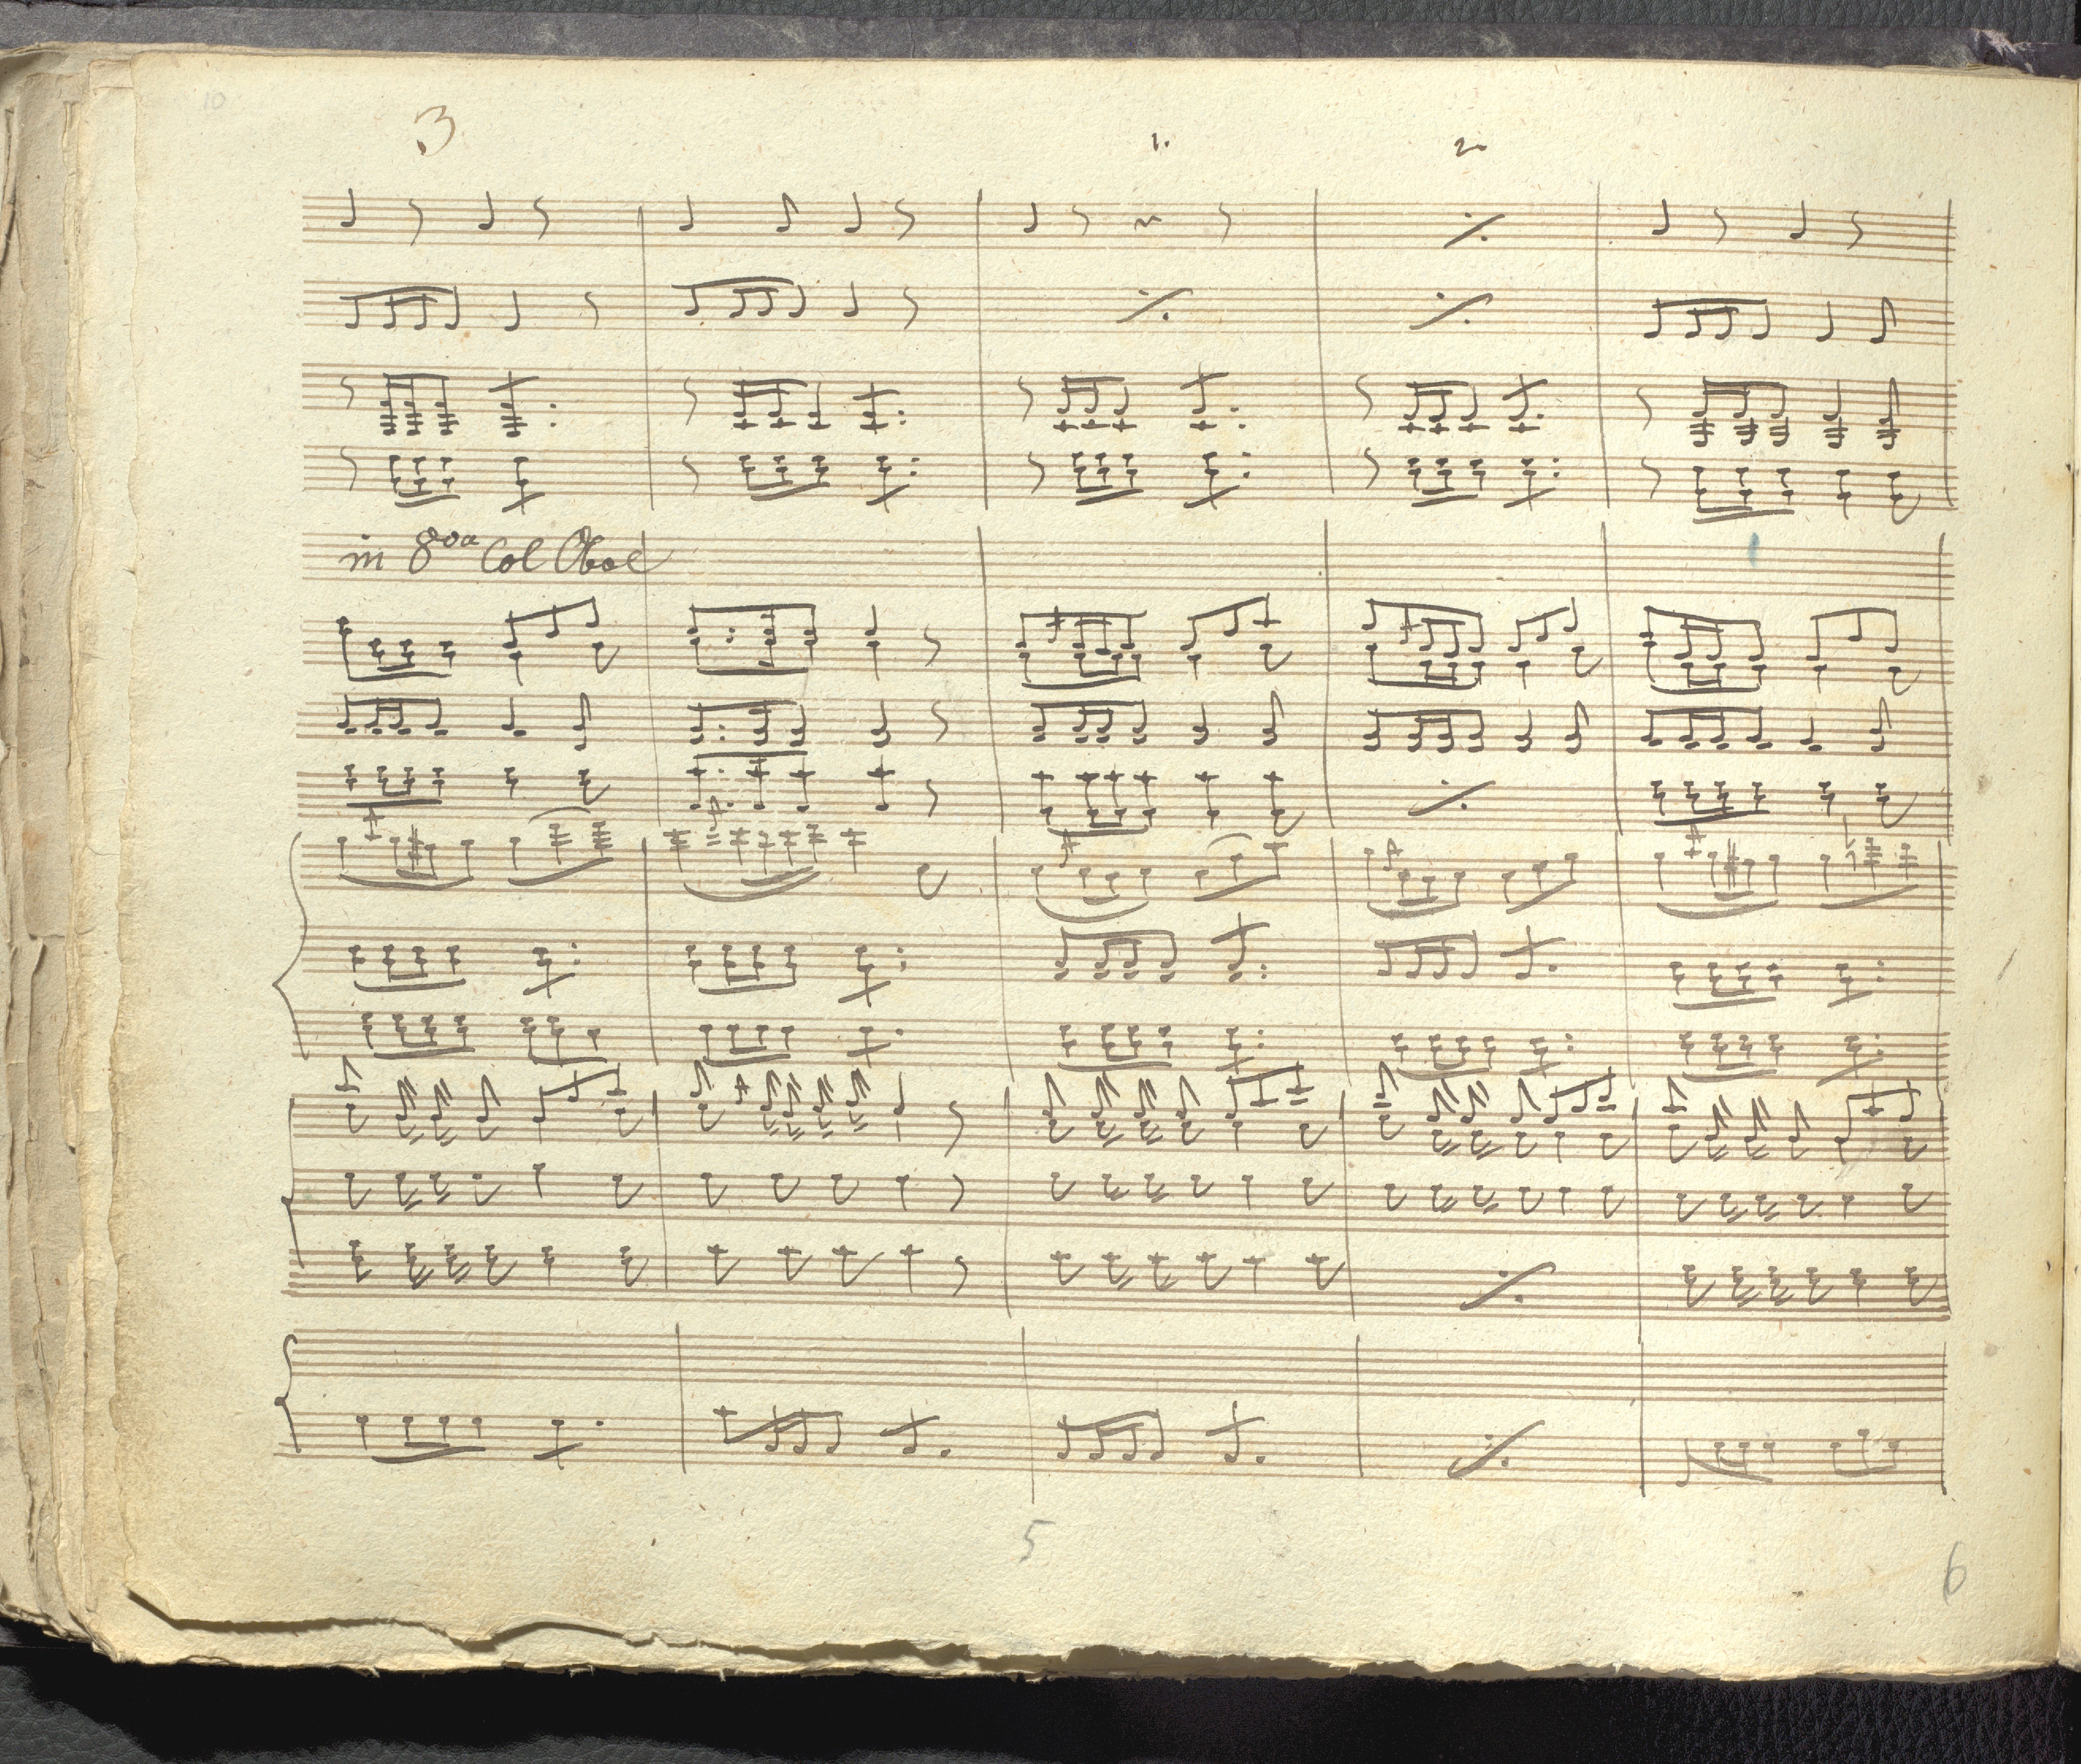 10
3
1. 2.
in 8voa Col Oboe
1
5
6